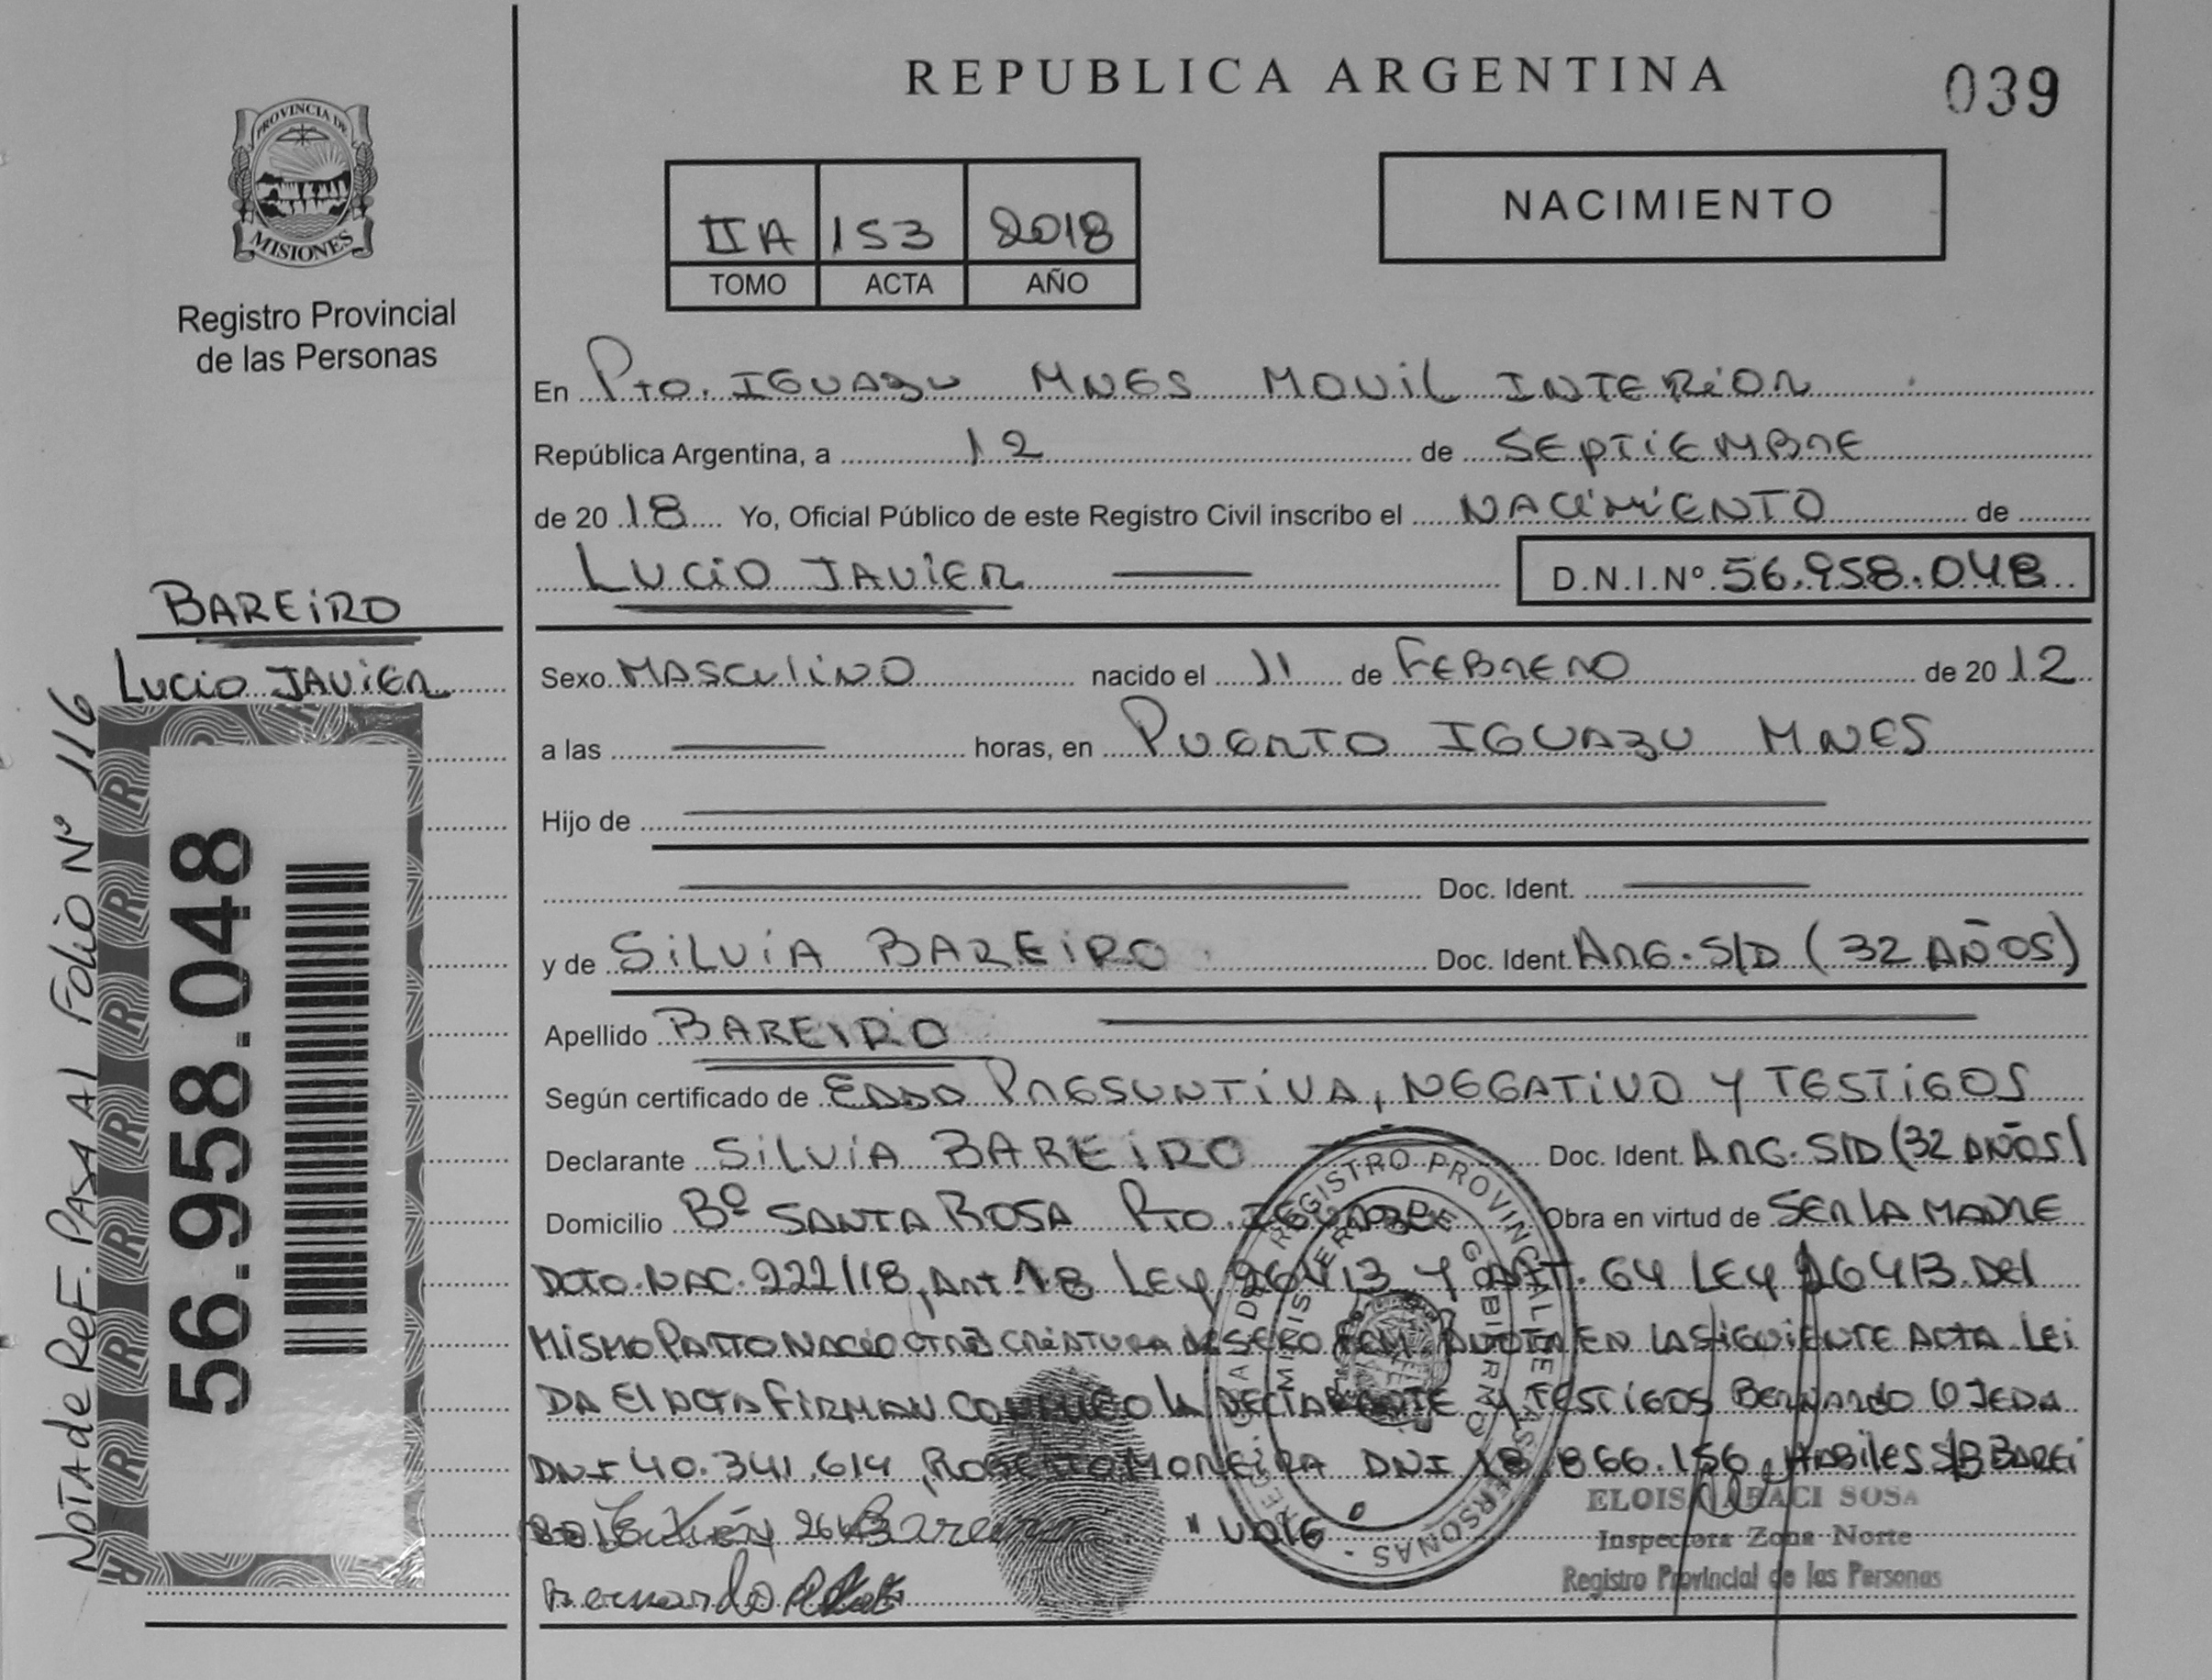 REPUBLICA ARGENTINA
039
PROVINCIA DE
MISIONES
Registro Provincial
de las Personas
IIA 153 2018
TOMO ACTA AÑO
NACIMIENTO
En Pto. IGUAZU MNES MOVIL INTERIOR
República Argentina, a 12 de SEPTIEMBRE
de 20 18 Yo, Oficial Público de este Registro Civil inscribo el NACIMIENTO de
LUCIO JAVIER D.N.I.Nº 56.958.048
BAREIRO
LUCIO JAVIER
NOTA de REF. PASA AL FOLIO Nº 116
56.958.048
Sexo MASCULINO nacido el 11 de FEBRERO de 20 12
a las horas, en PUERTO IGUAZU MNES
Hijo de
Doc. Ident.
y de SILVIA BAREIRO Doc. Ident. ARG. S/D (32 AÑOS)
Apellido BAREIRO
Según certificado de EDAD PRESUNTIVA, NEGATIVO Y TESTIGOS
Declarante SILVIA BAREIRO Doc. Ident. ARG. S/D (32 AÑOS)
Domicilio Bº SANTA ROSA Pto. IGUAZU Obra en virtud de SER LA MADRE
DCTO. NAC. 222/18, Art. 18 LEY 26413 Y ART. 64 LEY 26413. DEL
MISMO PARTO NACIO OTRA CRIATURA DE SEXO FEM. EN LA SIGUIENTE ACTA LEI
DA EL ACTA FIRMAN CONMIGO LA DECLARANTE Y TESTIGOS BERNARDO OJEDA
DNI 40.341.614, ROBERTO MOREIRA DNI 18.866.156, HABILES S/B BAREI
RO LEY 26413 "VALE"
Bernardo
REGISTRO PROVINCIAL DE LAS PERSONAS
MINISTERIO DE GOBIERNO
ELOISA ARACI SOSA
Inspectora Zona Norte
Registro Provincial de las Personas